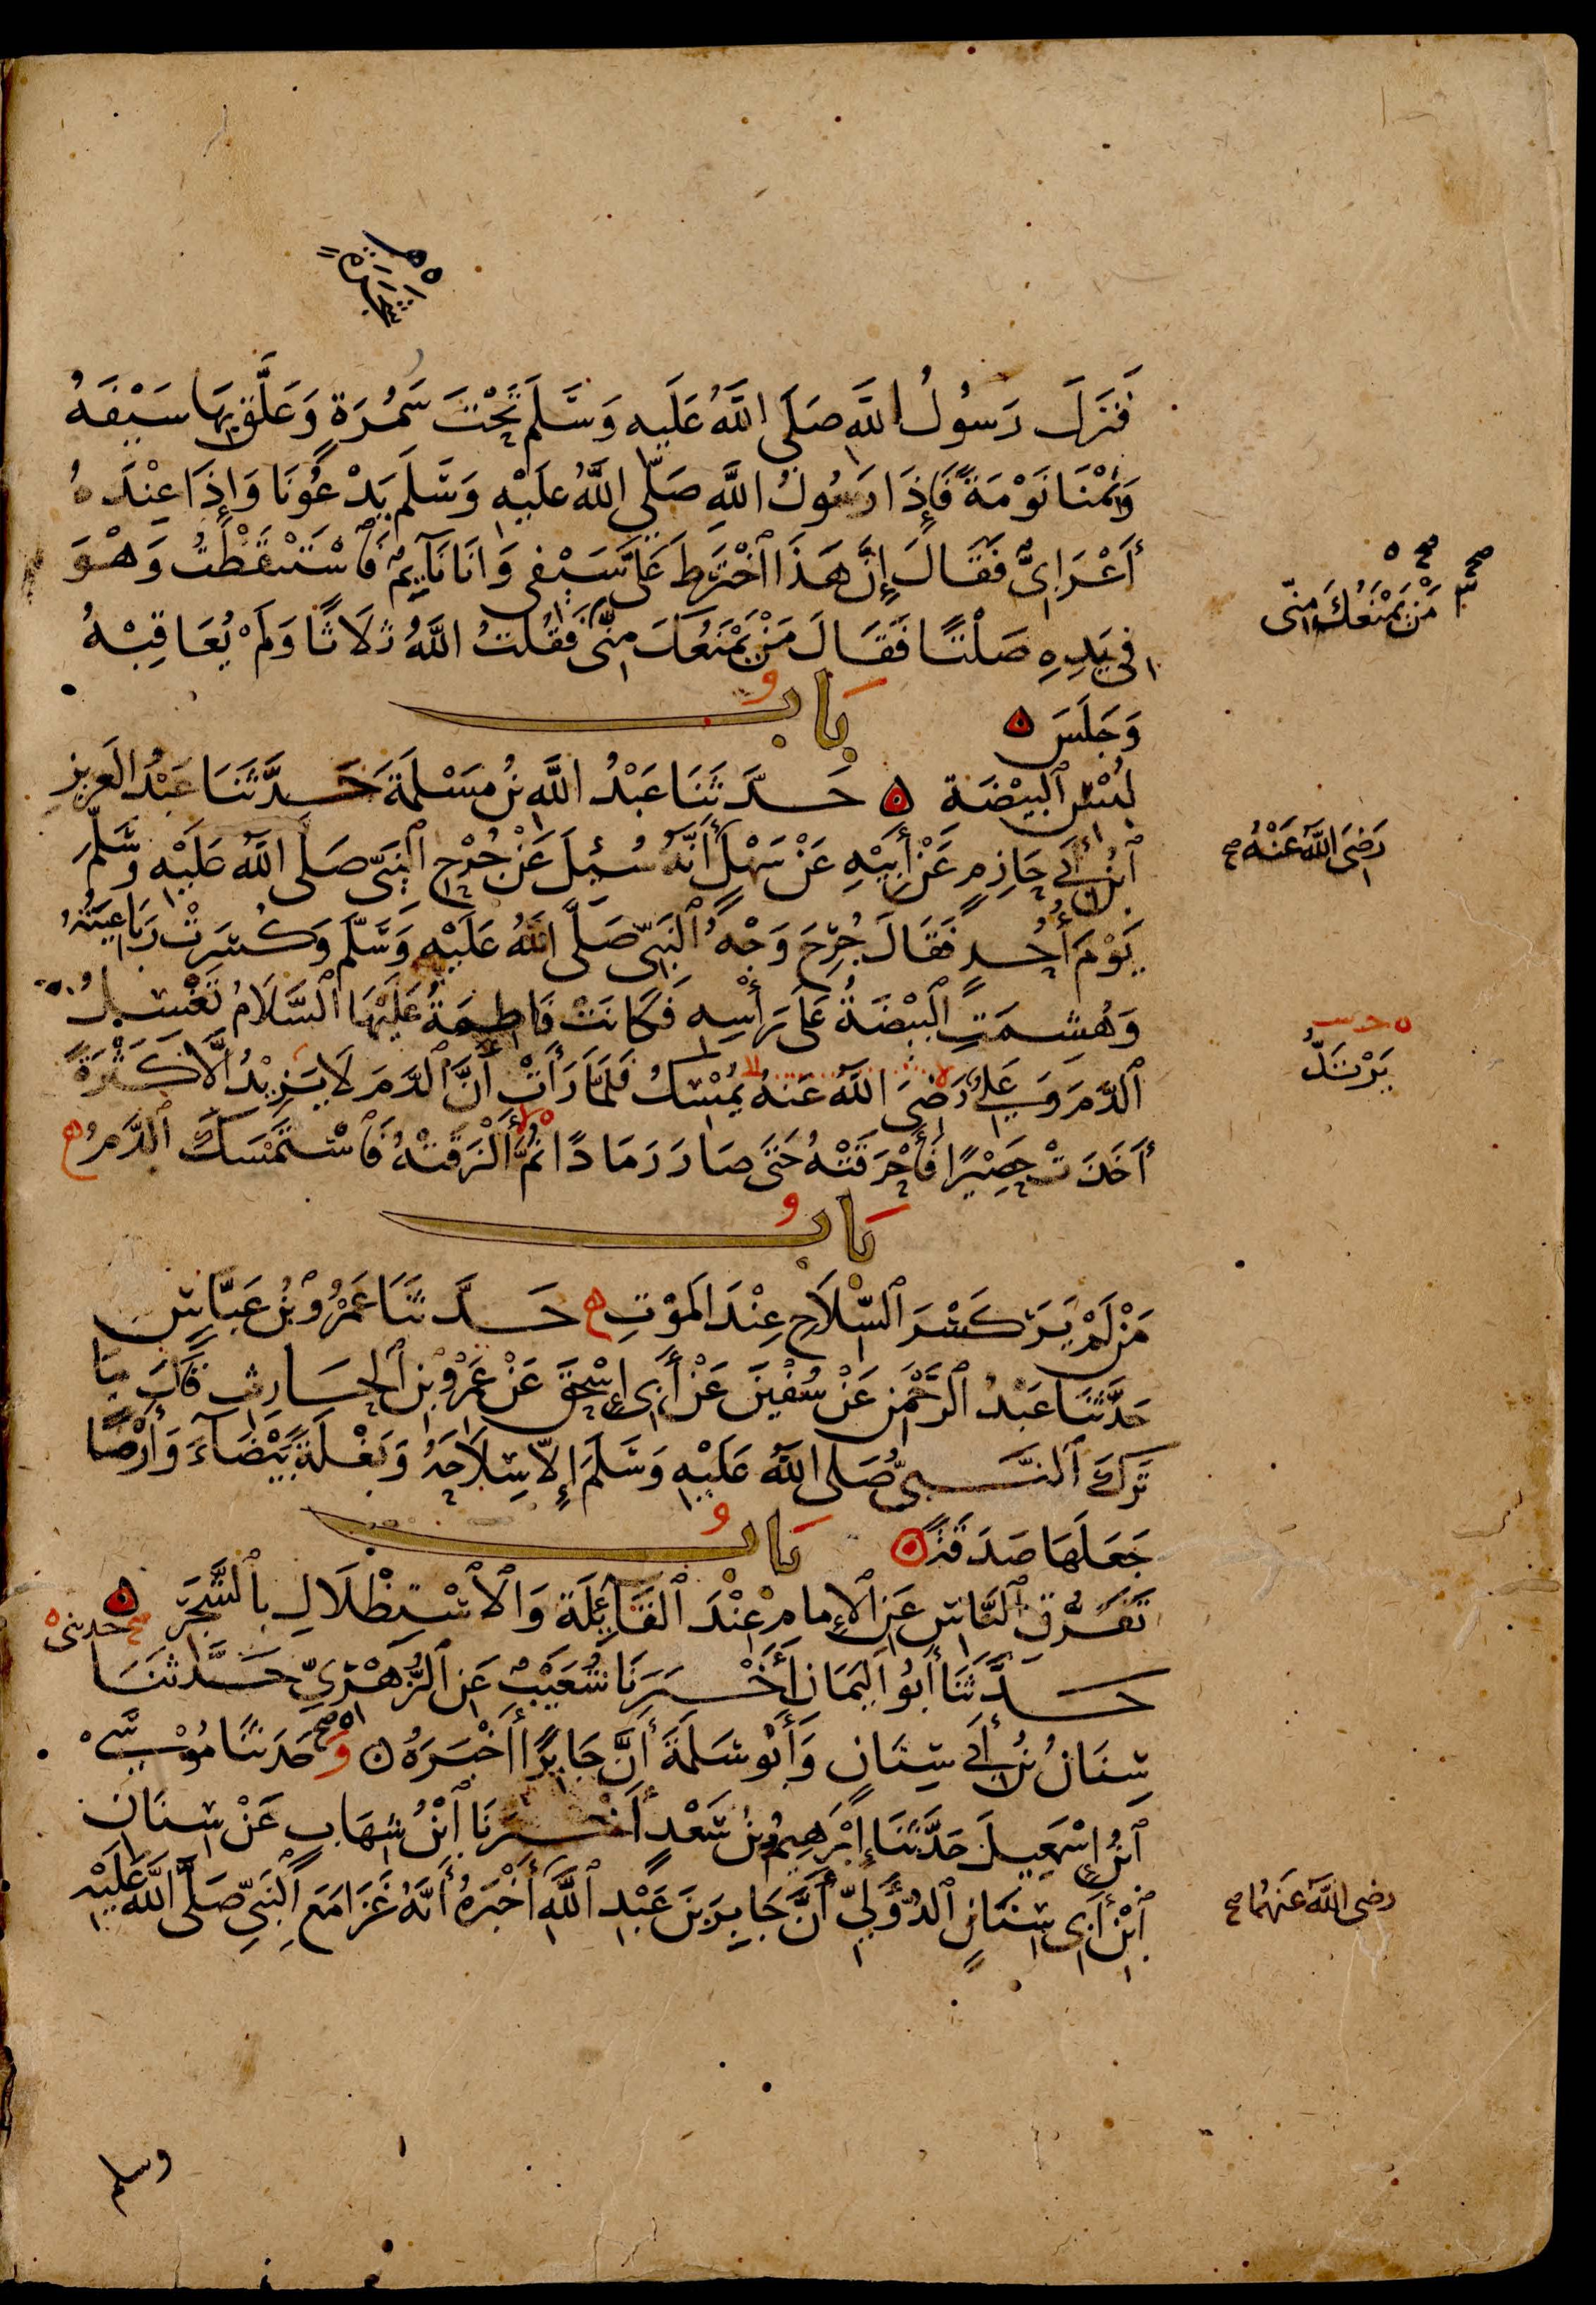 فَنَزَلَ رَسُولُ اللَّهِ صَلَّى اللَّهُ عَلَيهِ وَسَلَّمَ تَحْتَ سَمُرَةٍ وَعَلَّقَ بِهَا سَيْفَهُ
وَنِمْنَا نَوْمَةً فَإِذَا رَسُولُ اللَّهِ صَلَّى اللَّهُ عَلَيْهِ وَسَلَّمَ يَدْعُونَا وَإِذَا عِنْدَهُ
أَعْرَابِيٌّ فَقَالَ إِنَّ هَذَا اخْتَرَطَ عَلَيَّ سَيْفِي وَأَنَا نَايِمٌ فَاسْتَيْقَظْتُ وَهْوَ
فِي يَدِهِ صَلْتًا فَقَالَ مَنْ يَمْنَعُكَ مِنِّي فَقُلْتُ اللَّهُ ثَلَاثًا وَلَمْ يُعَاقِبْهُ
مَنْ يَمْنَعُكَ مِنِّي
وَجَلَسَ بَابُ
لُبْسِ الْبَيْضَةِ حَدَّثَنَا عَبْدُ اللَّهِ بْنُ مَسْلَمَةَ حَدَّثَنَا عَبْدُ الْعَزِيزِ
ابْنُ أَبِي حَازِمٍ عَنْ أَبِيْهِ عَنْ سَهْلٍ أَنَّهُ سُئِلَ عَنْ جُرْحِ النَّبِيِّ صَلَّى اللَّهُ عَلَيْهِ وَسَلَّمَ
رَضِيَ اللَّهُ عَنْهُ صح
يَوْمَ أُحُدٍ فَقَالَ جُرِحَ وَجْهُ النَّبِيِّ صَلَّى اللَّهُ عَلَيْهِ وَسَلَّمَ وَكُسِرَتْ رَبَاعِيَتُهُ
وَهُشِمَتِ الْبَيْضَةُ عَلَى رَأْسِهِ فَكَانَتْ فَاطِمَةُ عَلَيْهَا السَّلَامُ تَغْسِلُ
الدَّمَ وَعَلِيٌّ رَضِيَ اللَّهُ عَنْهُ يُمْسِكُ فَلَمَّا رَأَتْ أَنَّ الدَّمَ لَا يَزِيْدُ إِلَّا كَثْرَةً
يَرْتَدُّ
أَخَذَتْ حَصِيْرًا فَأَحْرَقَتْهُ حَتَّى صَارَ رَمَادًا ثُمَّ أَلْزَقَتْهُ فَاسْتَمْسَكَ الدَّمُ
بَابُ
مَنْ لَمْ يَرَ كَسْرَ السِّلَاحِ عِنْدَ الْمَوْتِ حَدَّثَنَا عَمْرُو بْنُ عَبَّاسٍ
حَدَّثَنَا عَبْدُ الرَّحْمٰنِ عَنْ سُفْيٰنَ عَنْ أَبِي إِسْحٰقَ عَنْ عَمْرِو بْنِ الْحَارِثِ قَالَ مَا
تَرَكَ النَّبِيُّ صَلَّى اللَّهُ عَلَيْهِ وَسَلَّمَ إِلَّا سِلَاحَهُ وَبَغْلَةً بَيْضَآءَ وَأَرْضًا
جَعَلَهَا صَدَقَةً بَابُ
تَفَرُّقِ النَّاسِ عَنِ الْإِمَامِ عِنْدَ الْقَائِلَةِ وَالْاسْتِظْلَالِ بِالشَّجَرِ
صح حدثنى
حَدَّثَنَا أَبُو الْيَمَانِ أَخْبَرَنَا شُعَيْبٌ عَنِ الزُّهْرِيِّ حَدَّثَنَا
سِنَانُ بْنُ أَبِي سِنَانٍ وَأَبُو سَلَمَةَ أَنَّ جَابِرًا أَخْبَرَهُ وَ حَدَّثَنَا مُوْسَى
ابْنُ إِسْمٰعِيلَ حَدَّثَنَا إِبْرٰهِيمُ بْنُ سَعْدٍ أَخْبَرَنَا ابْنُ شِهَابٍ عَنْ سِنَانِ
ابْنِ أَبِي سِنَانٍ الدُّؤَلِيِّ أَنَّ جَابِرَ بْنَ عَبْدِ اللَّهِ أَخْبَرَهُ أَنَّهُ غَزَا مَعَ النَّبِيِّ صَلَّى اللَّهُ عَلَيْهِ
رَضِيَ اللَّهُ عَنْهُمَا صح
وسلم